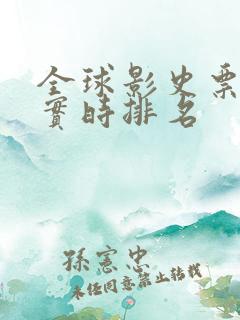 全球影史票
實時排名
孫憲忠
未經同意禁止转载